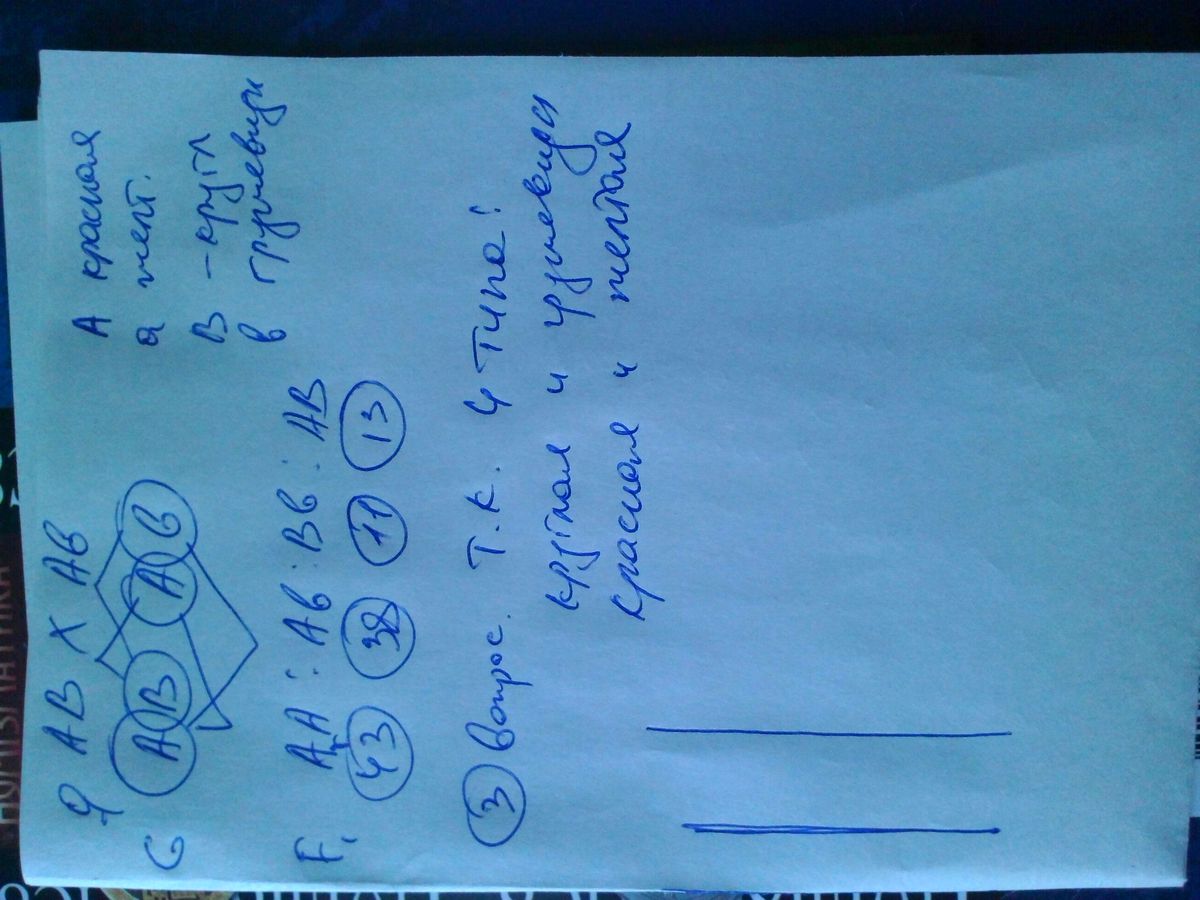 А красная
а желт.
В - кругл
в грушевидн
♀ АВ х Ав
G А В А в
F₁ АА : Ав : Вв : АВ
43 38 11 13
3 вопрос. Т.к. 4 типа:
круглая и грушевидн
красная и желтая